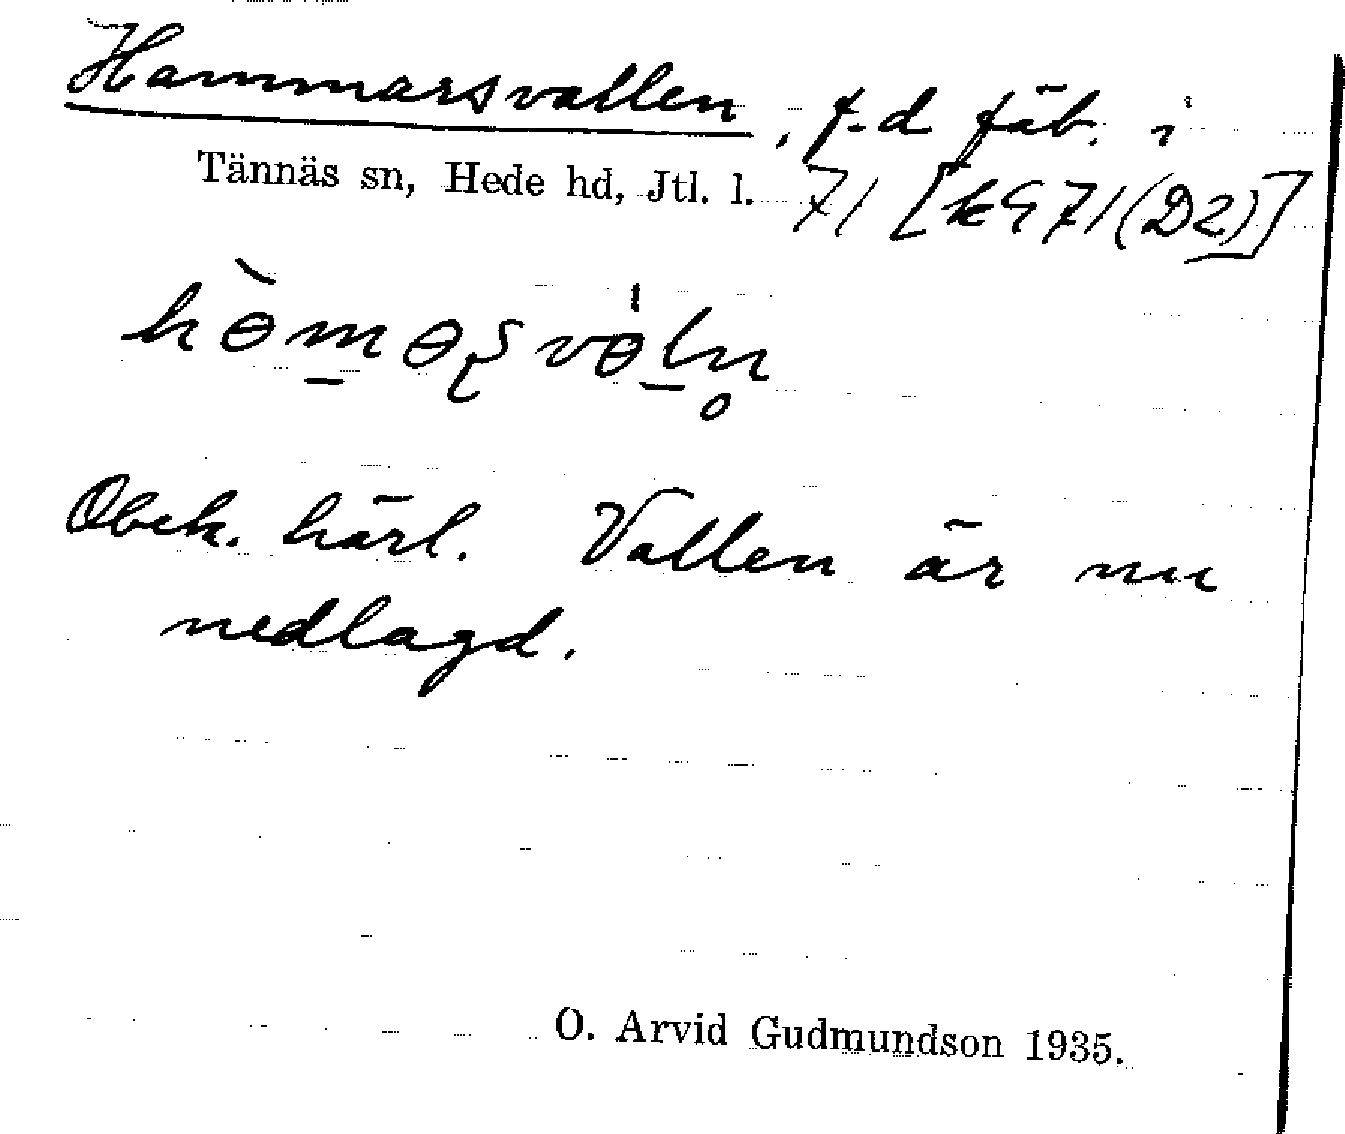 Hammarsvallen, f.d fäb. i
Tännäs sn, Hede hd, Jtl. l. 71 [k G 71 (D2)]
Obek. härl. Vallen är nu
nedlagd.
O. Arvid Gudmundson 1935.